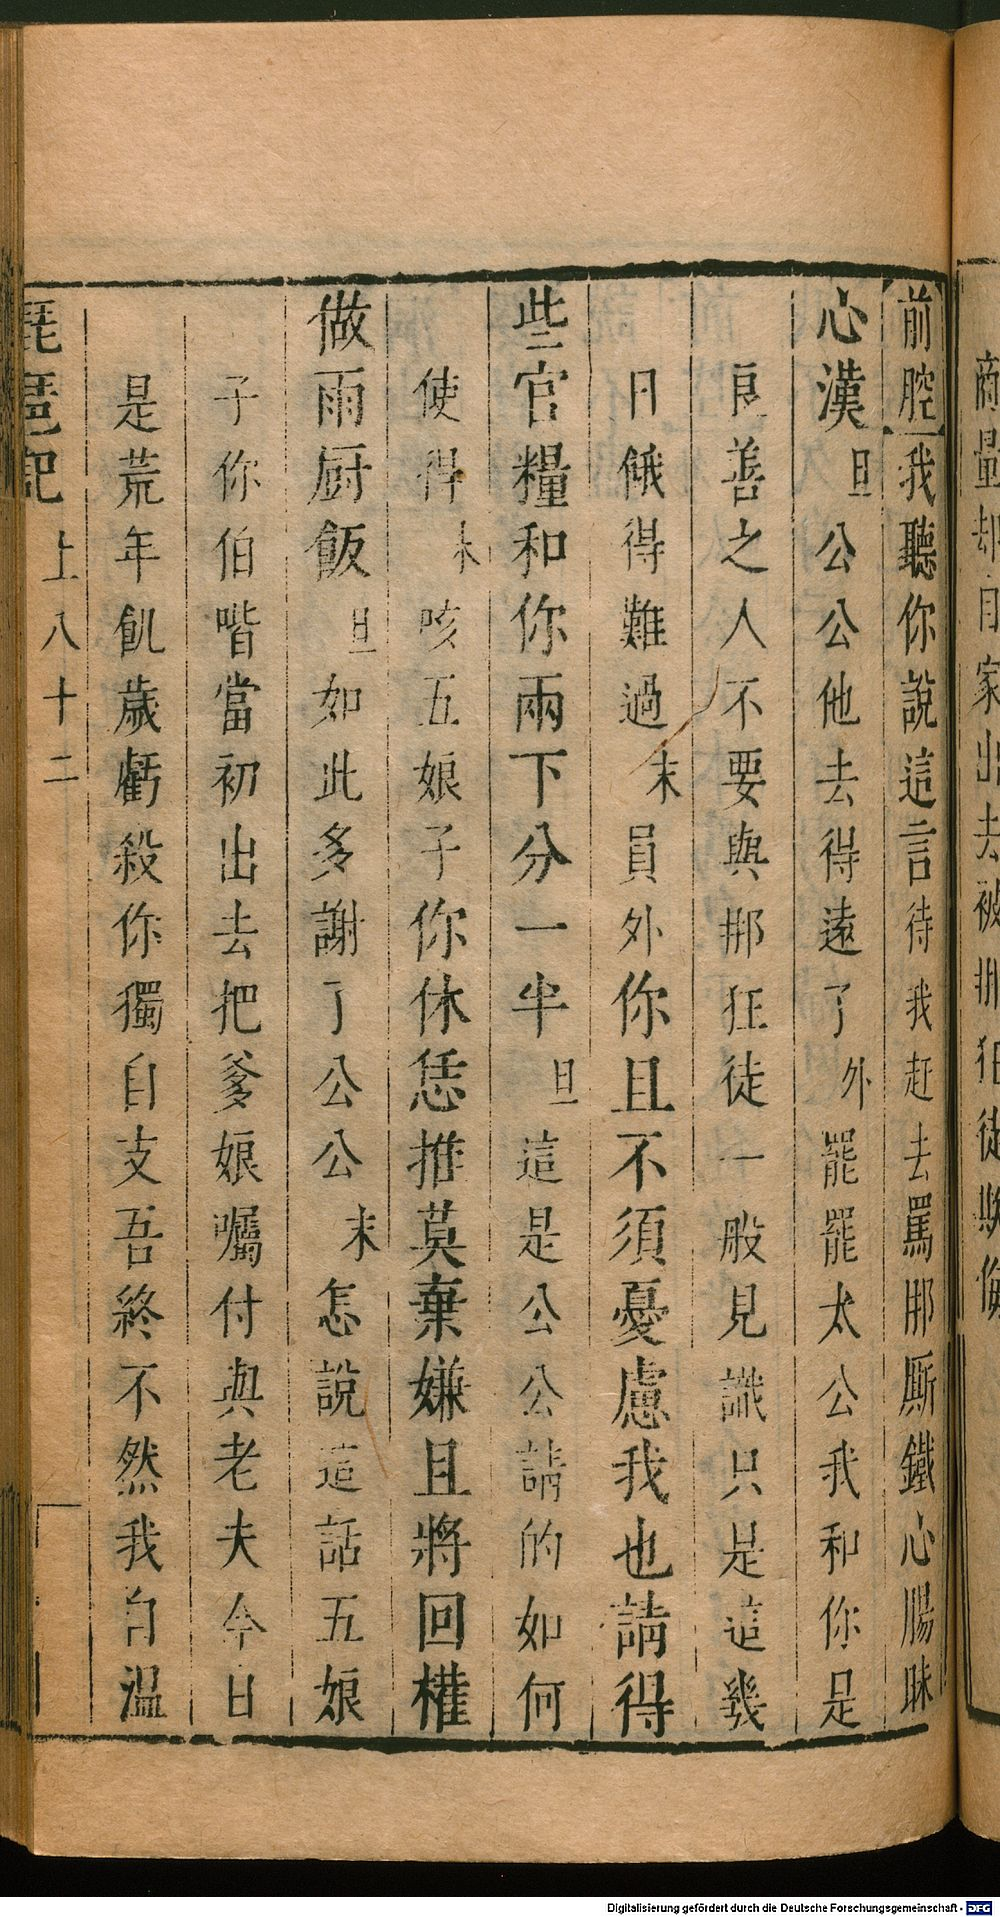 商量却自家出去被那狂徒欺侮
前腔我聽你說這言待我赶去罵那厮鐵心腸昧
心漢旦公公他去得遠了外罷罷太公我和你是
良善之人不要與那狂徒一般見識只是這幾
日餓得難過末員外你且不須憂慮我也請得
些官糧和你兩下分一半旦這是公公請的如何
使得末咳五娘子你休恁推莫棄嫌且將回權
做兩厨飯旦如此多謝了公公末怎說這話五娘
子你伯喈當初出去把爹娘囑付與老夫今日
是荒年飢歲虧殺你獨自支吾終不然我自温
琵琶記 上八十二
Digitalisierung gefördert durch die Deutsche Forschungsgemeinschaft - DFG